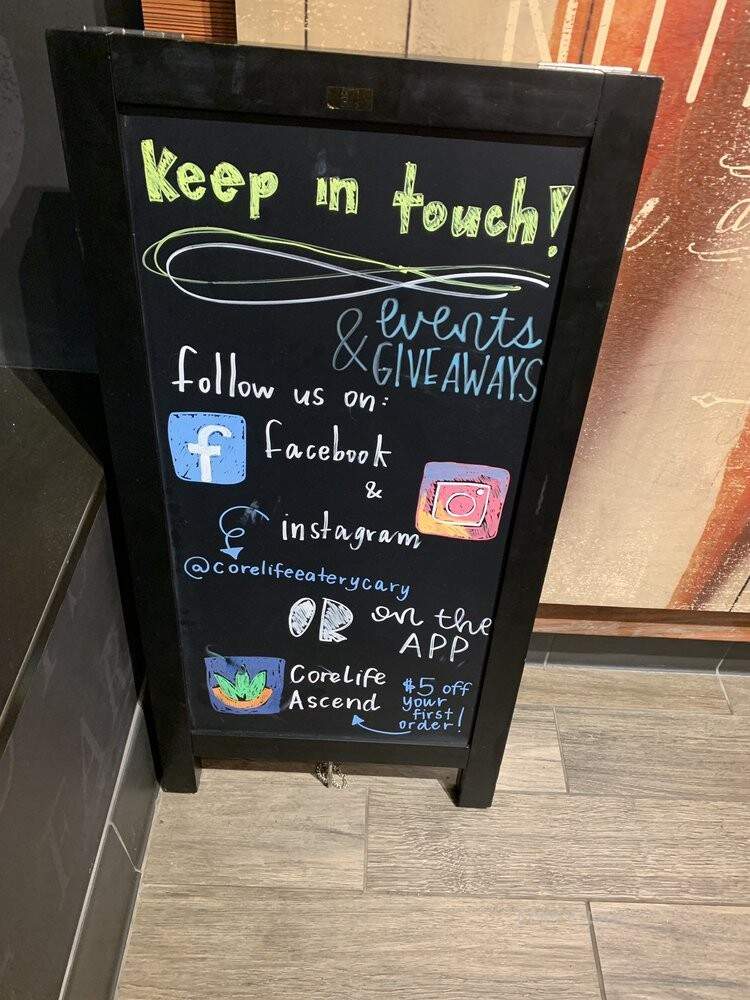 Keep in touch!
& events
GIVEAWAYS
follow us on:
f facebook
&
instagram
@corelifeeaterycary
OR on the
APP
CoreLife
Ascend
$5 off
your
first
order!